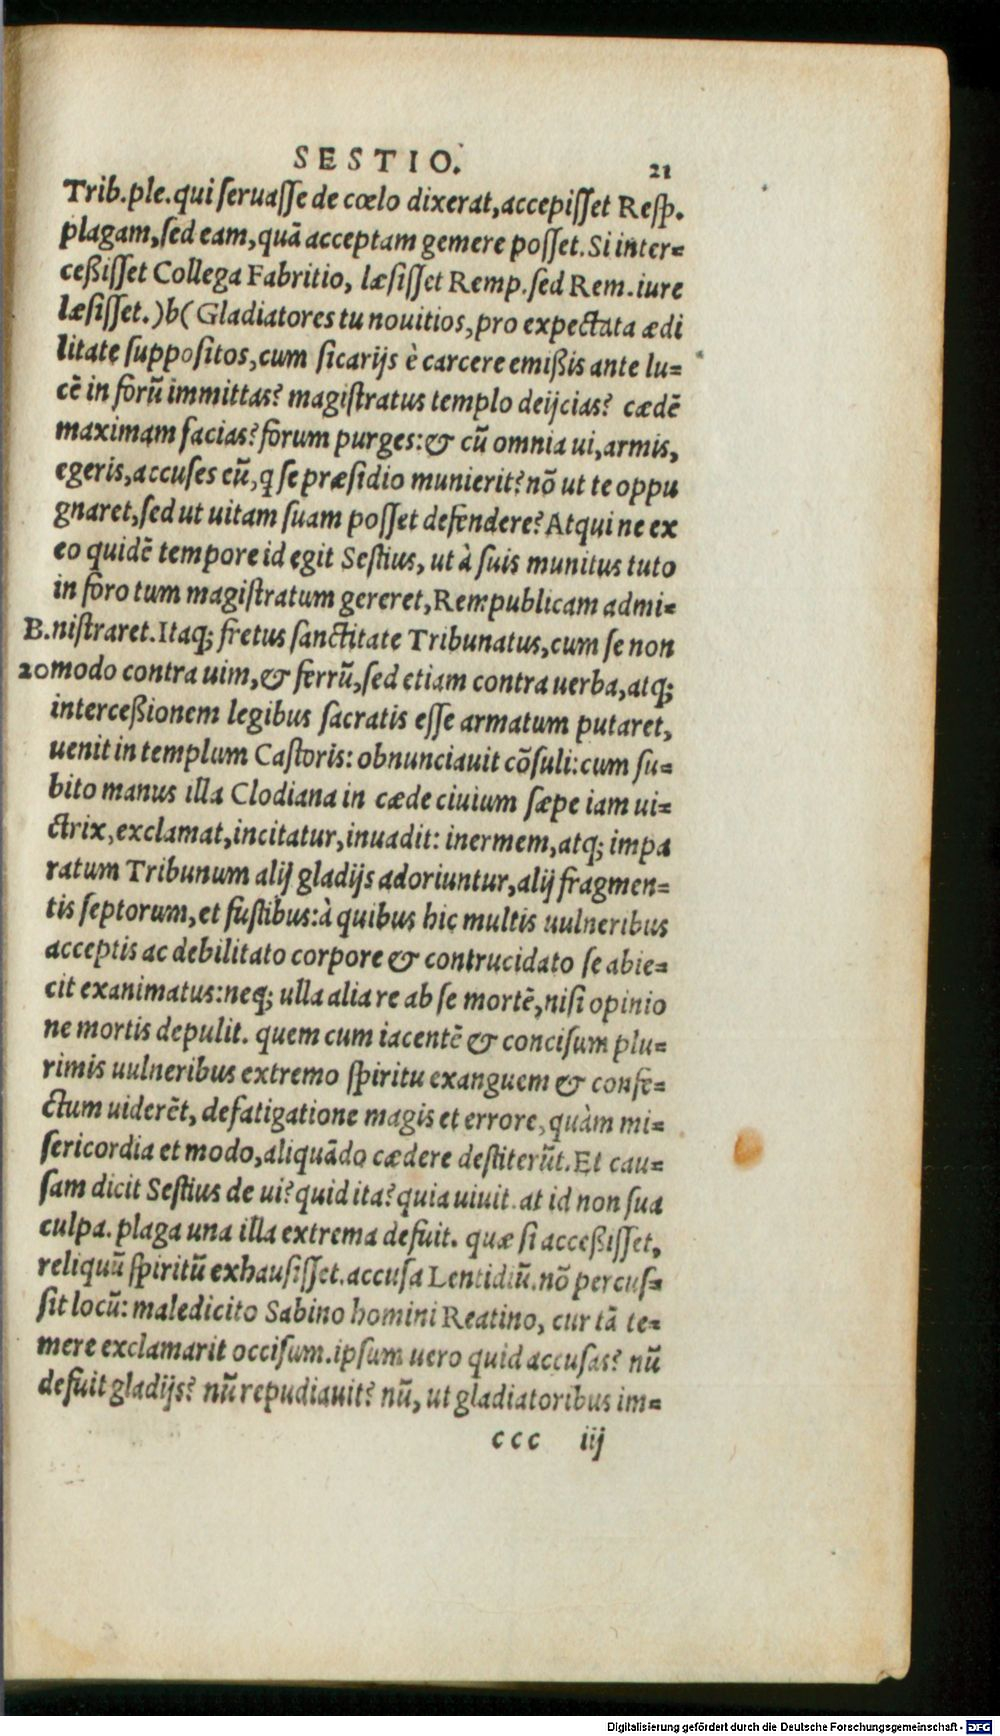 SESTIO. 21
Trib.ple.qui ſeruaſſe de cœlo dixerat,accepiſſet Reſp.
plagam,ſed eam,quā acceptam gemere poſſet.Si inter-
ceßiſſet Collega Fabritio, læſiſſet Remp.ſed Rem.iure
læſiſſet.)b(Gladiatores tu nouitios,pro expectata ædi
litate ſuppoſitos,cum ſicarijs è carcere emißis ante lu-
cē in forū immittas? magiſtratus templo deijcias? cædē
maximam facias? forum purges:& cū omnia ui,armis,
egeris,accuſes eū,q ſe præſidio munierit? nō ut te oppu
gnaret,ſed ut uitam ſuam poſſet defendere? Atqui ne ex
eo quidē tempore id egit Seſtius, ut à ſuis munitus tuto
in foro tum magiſtratum gereret,Rempublicam admi-
B.niſtraret.Itaq; fretus ſanctitate Tribunatus,cum ſe non
20 modo contra uim,& ferrū,ſed etiam contra uerba,atq;
interceßionem legibus ſacratis eſſe armatum putaret,
uenit in templum Caſtoris: obnunciauit cōſuli:cum ſu-
bito manus illa Clodiana in cæde ciuium ſæpe iam ui-
ctrix,exclamat,incitatur,inuadit: inermem,atq; impa
ratum Tribunum alij gladijs adoriuntur,alij fragmen-
tis ſeptorum,et fuſtibus:à quibus hic multis uulneribus
acceptis ac debilitato corpore & contrucidato ſe abie-
cit exanimatus:neq; ulla alia re ab ſe mortē,niſi opinio
ne mortis depulit. quem cum iacentē & conciſum plu-
rimis uulneribus extremo ſpiritu exanguem & confe-
ctum uiderēt, defatigatione magis et errore,quàm mi-
ſericordia et modo,aliquādo cædere deſtiterūt.Et cau-
ſam dicit Seſtius de ui? quid ita? quia uiuit.at id non ſua
culpa.plaga una illa extrema defuit. quæ ſi acceßiſſet,
reliquū ſpiritū exhauſiſſet.accuſa Lentidiū.nō percuſ-
ſit locū: maledicito Sabino homini Reatino, cur tā te-
mere exclamarit occiſum.ipſum uero quid accuſas? nū
defuit gladijs? nū repudiauit? nū, ut gladiatoribus im-
ccc iij
Digitalisierung gefördert durch die Deutsche Forschungsgemeinschaft - DFG